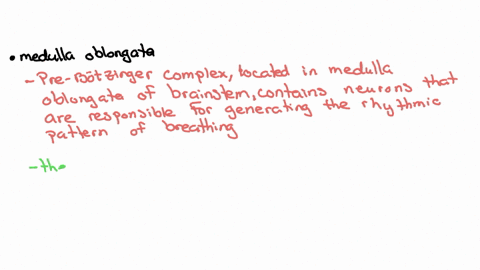 • medulla oblongata
- Pre-Bötzinger complex, located in medulla
oblongate of brainstem, contains neurons that
are responsible for generating the rhythmic
pattern of breathing
- the